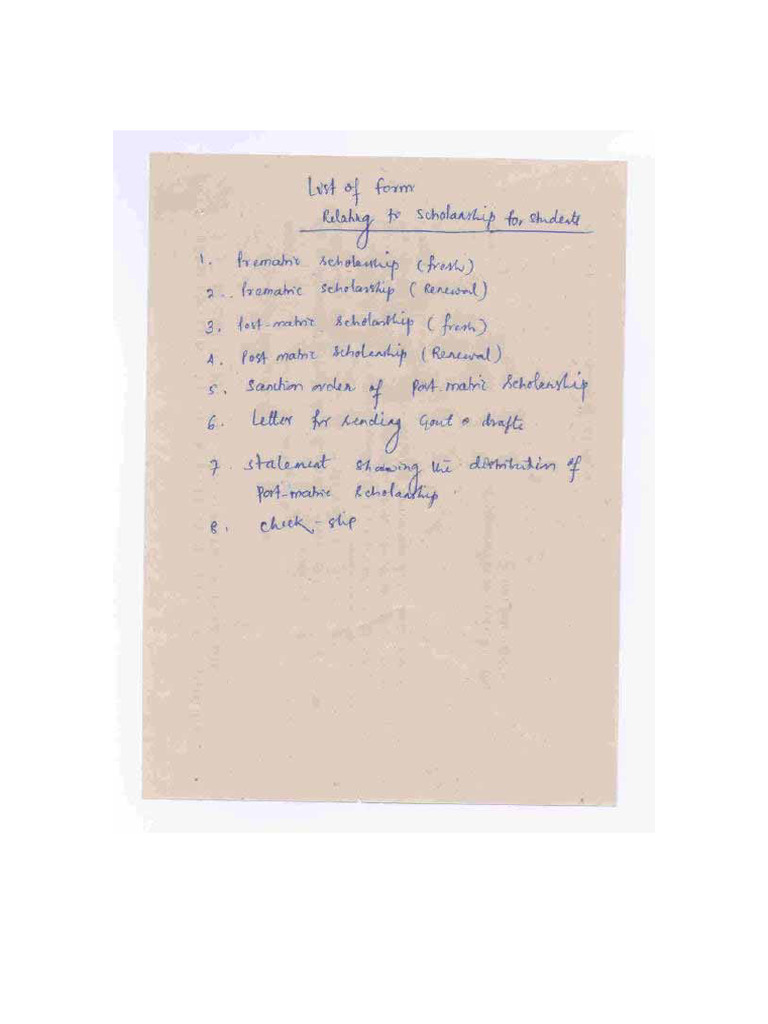 List of form
Relating to Scholarship for students
1. Prematric Scholarship (fresh)
2. Prematric Scholarship (Renewal)
3. Post-matric Scholarship (fresh)
4. Post matric Scholarship (Renewal)
5. Sanction order of Post-matric Scholarship
6. Letter for sending Gout drafts
7. Statement showing the distribution of
Post-matric Scholarship.
8. Check-slip